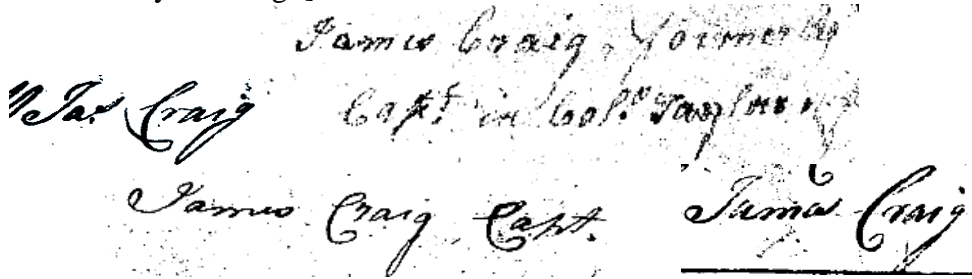 James Craig, formerly
Jas Craig
Capt. in Col.º Taylors
James Craig Capt.
James Craig